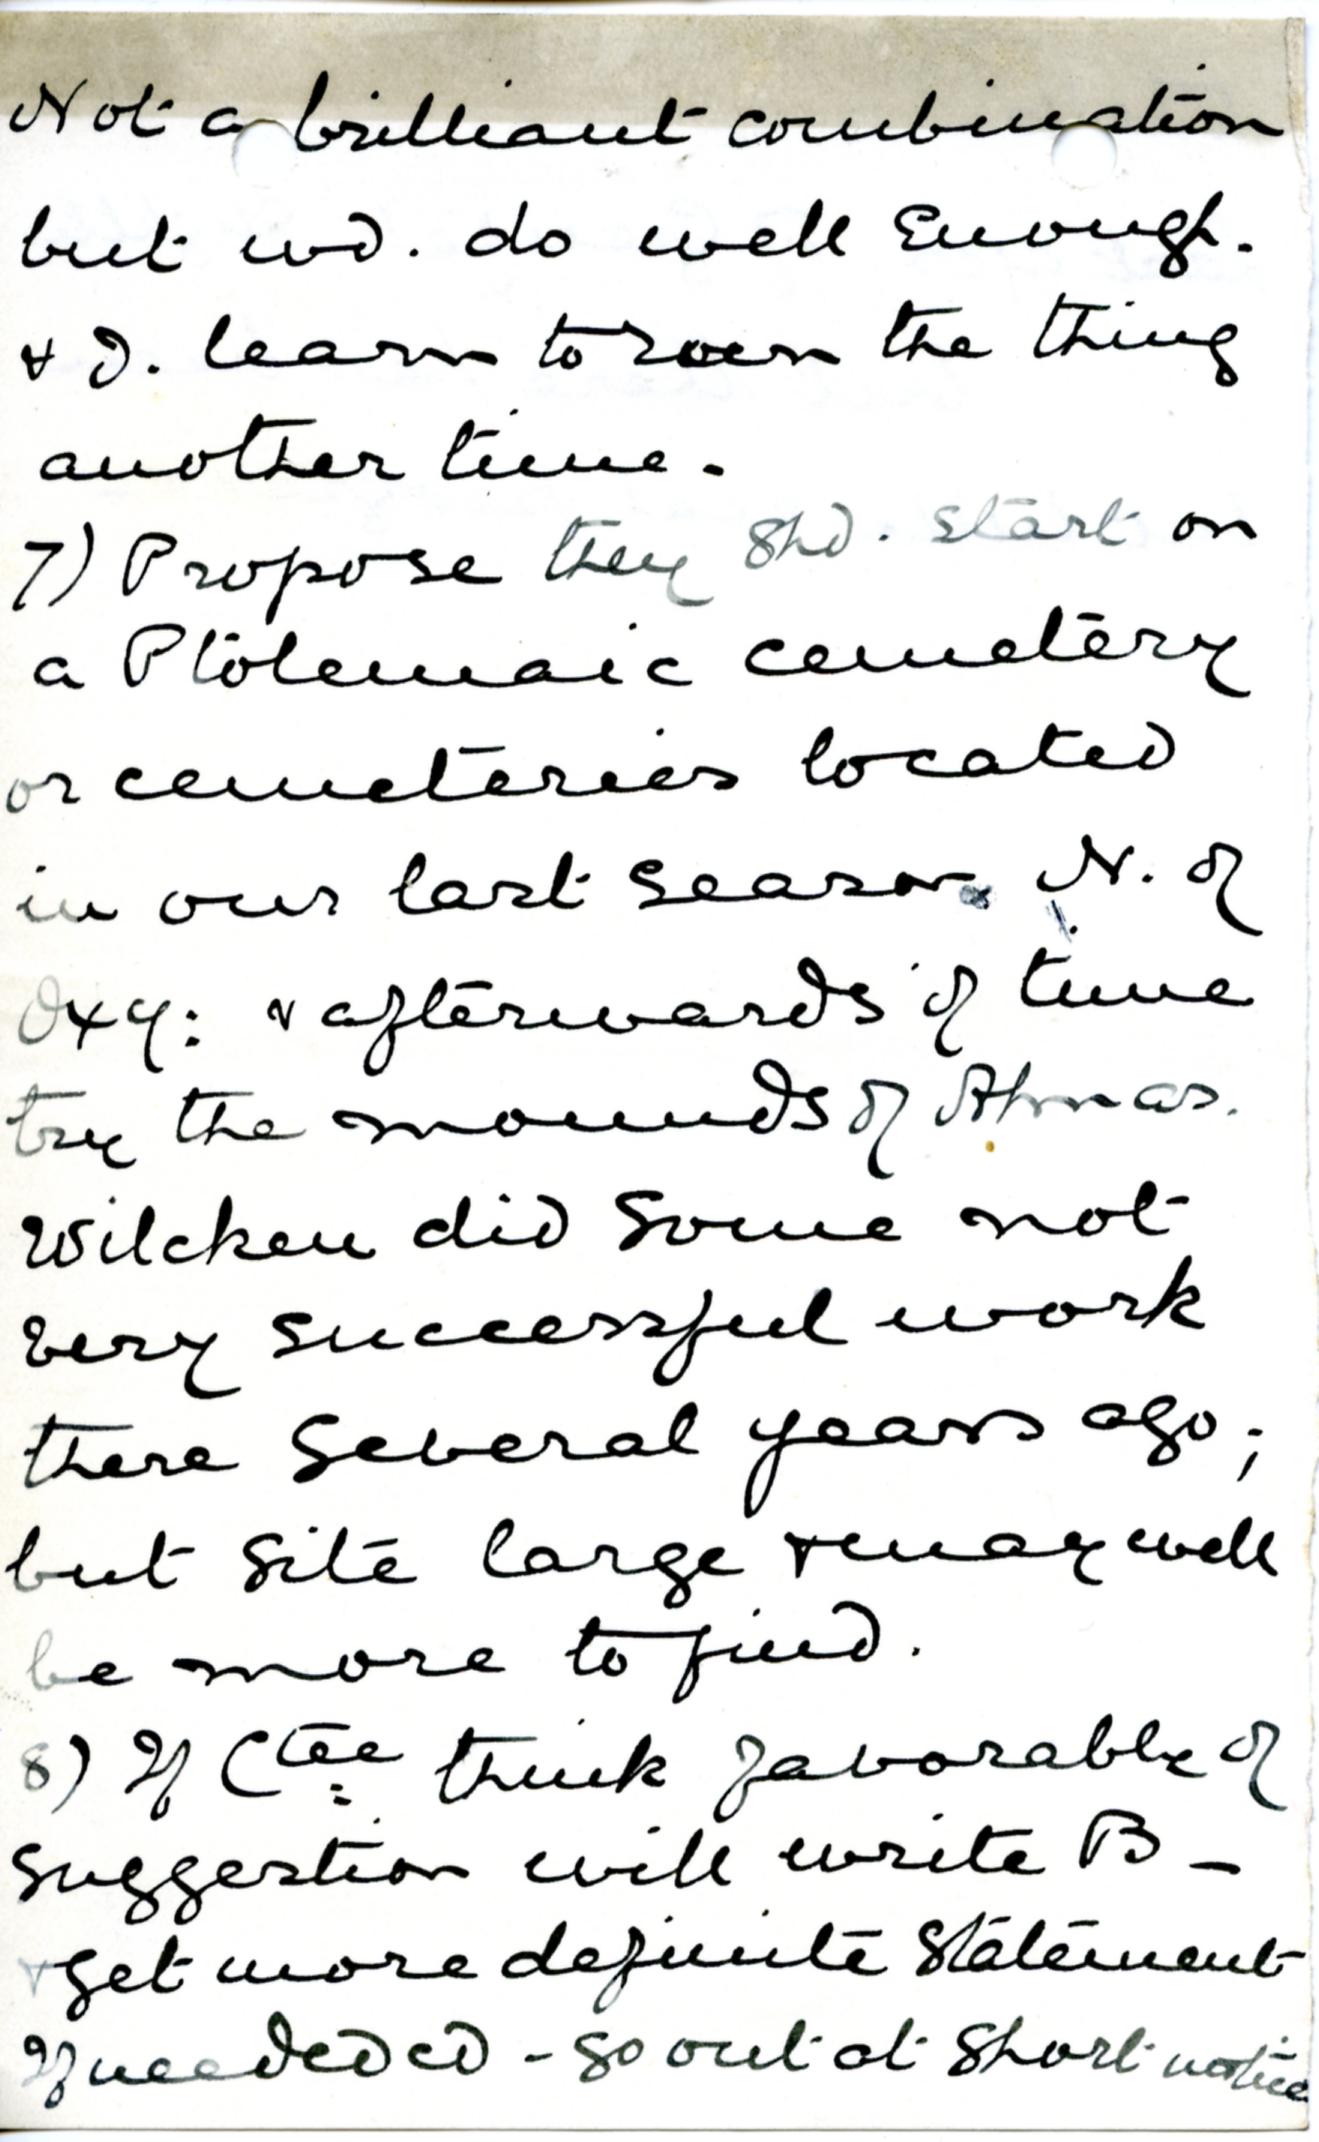 Not a brilliant combination
but wd. do well enough.
& J. learn to run the thing
another time.
7) Propose they shd. start on
a Ptolemaic cemetery
or cemeteries located
in our last season N. of
Oxy: & afterwards if time
try the mounds of Ahnas.
Wilcken did some not
very successful work
there several years ago;
but site large & may well
be more to find.
8) If Ctee think favorably of
suggestion will write B -
& get more definite statement
If needed - go out at short notice